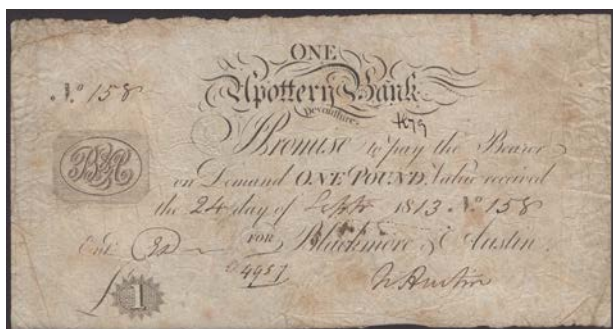 ONE
Upottery Bank
Devonshire
No 158
I Promise to pay the Bearer
on Demand ONE POUND Value received
the 24 day of Septr 1813 No 158
Entd FOR Blackmore & Austin
4957
£1